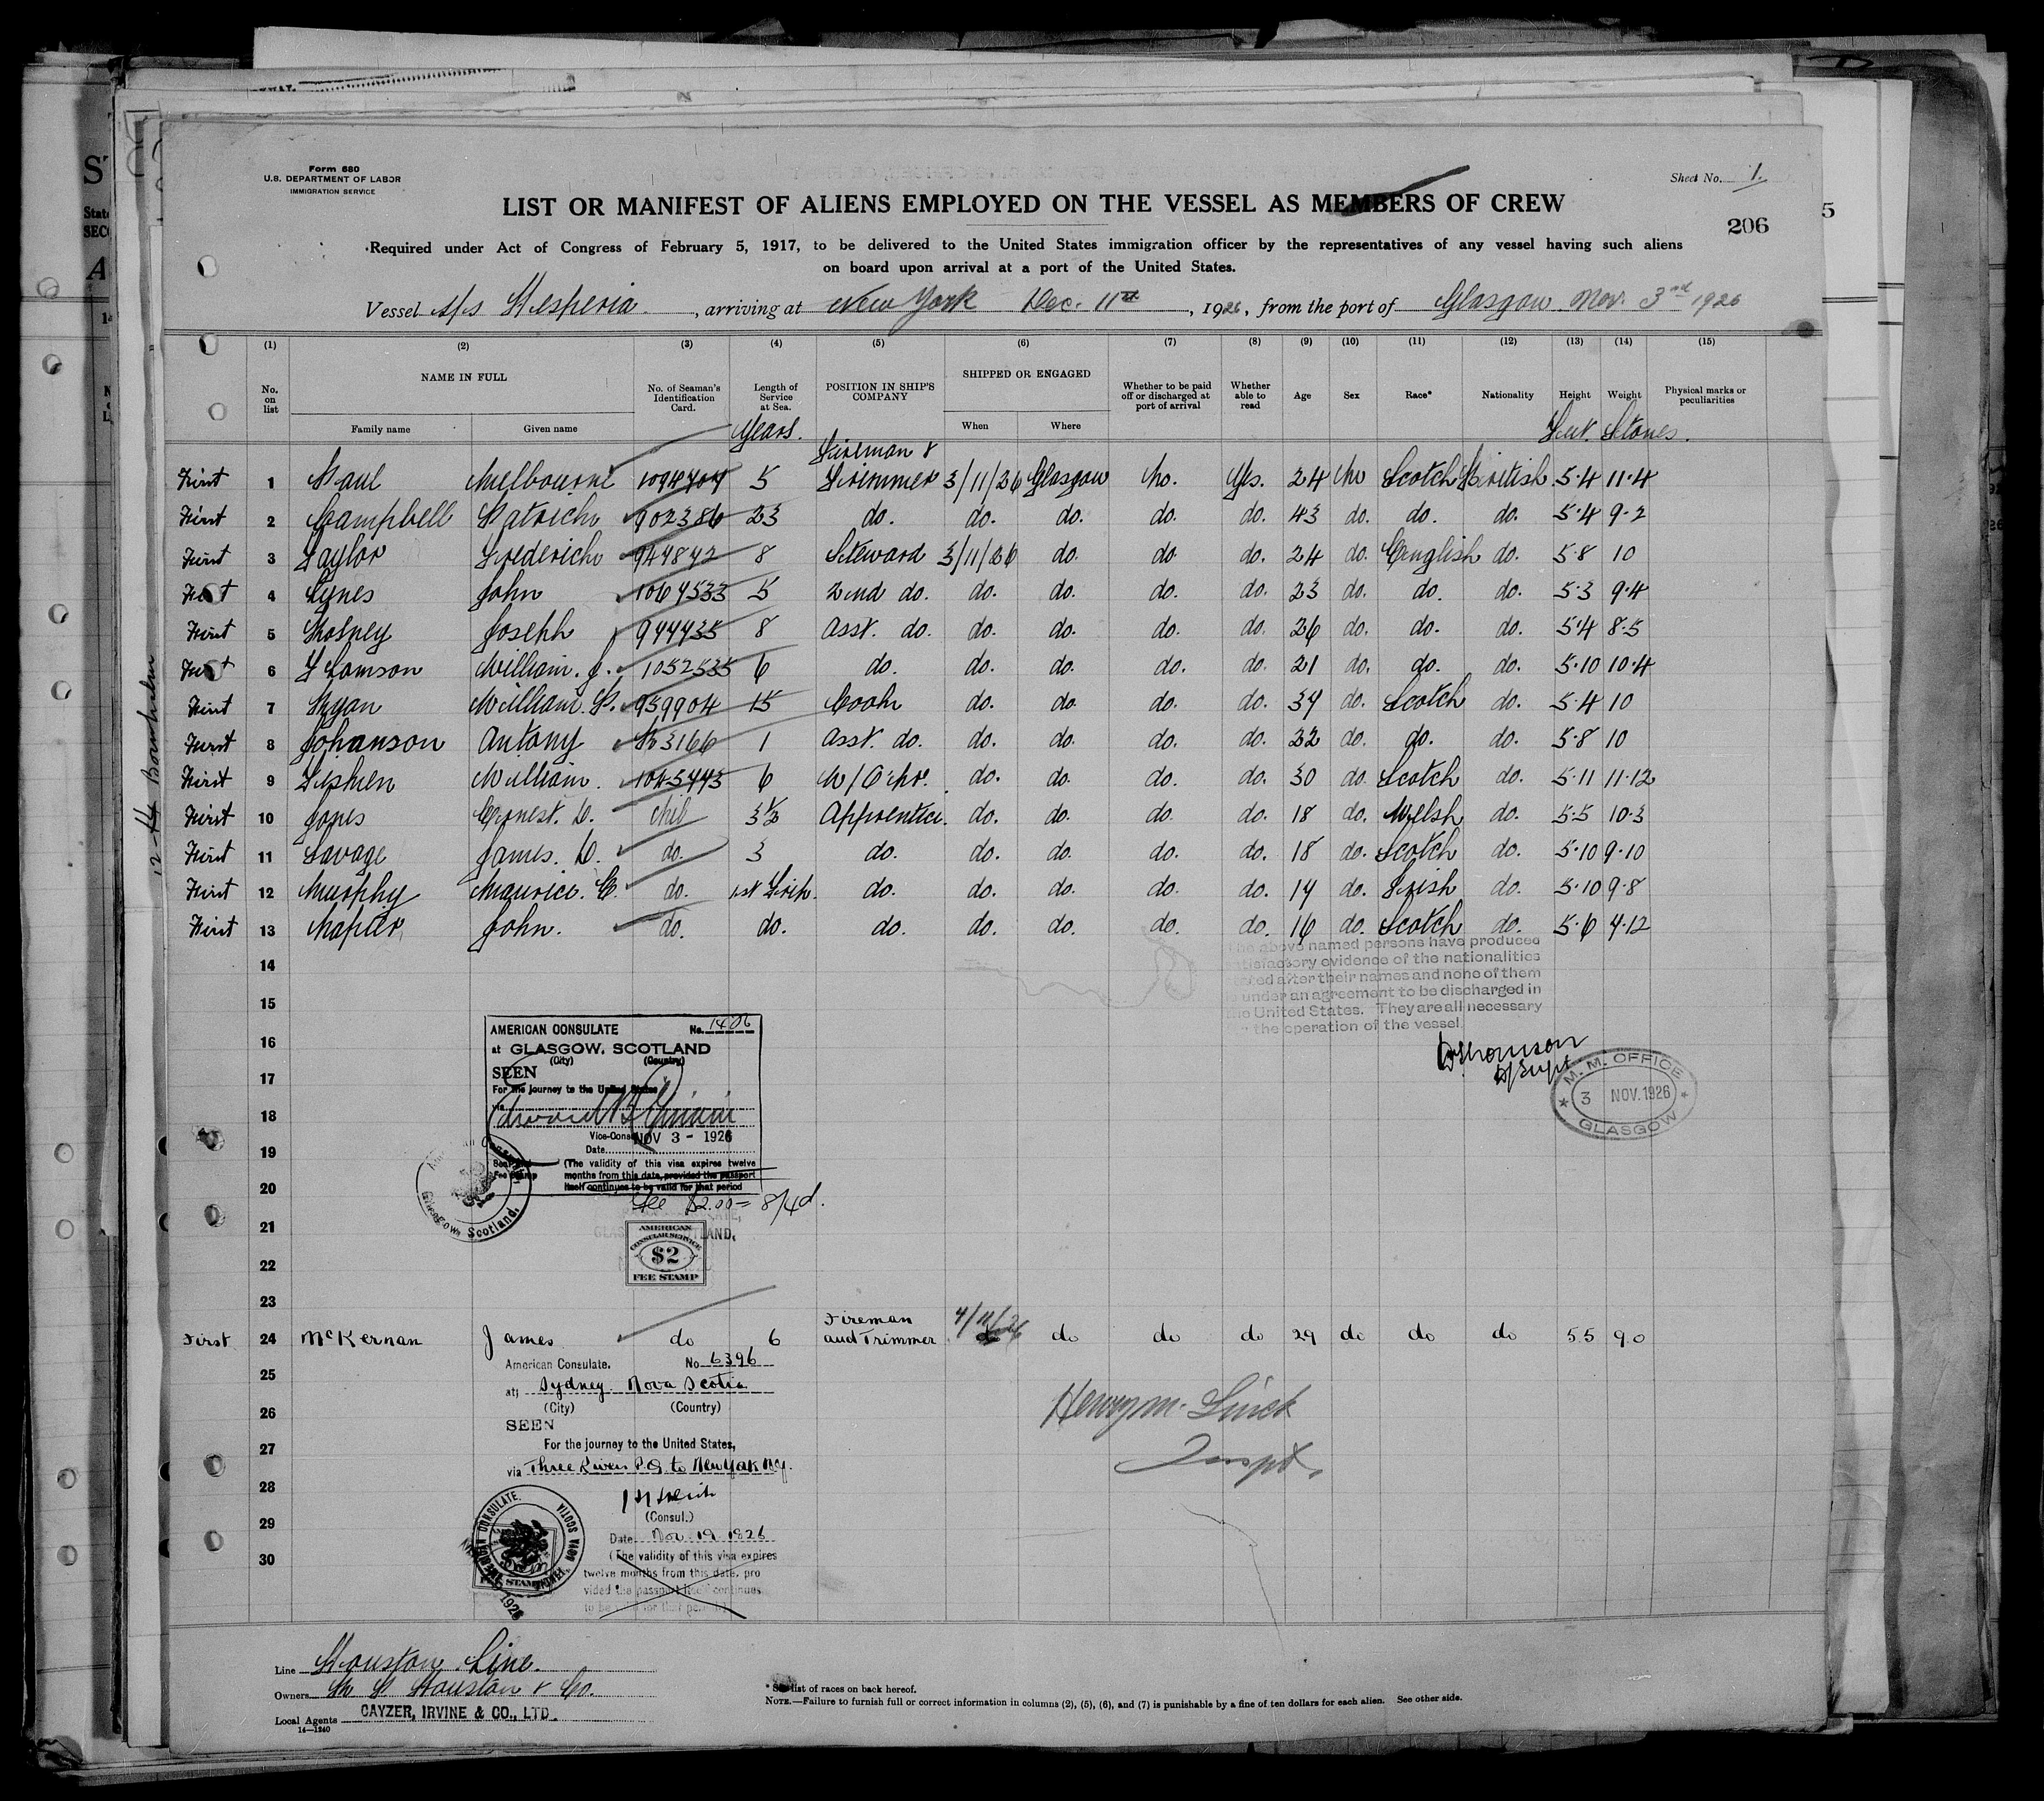 Form 680
U.S. DEPARTMENT OF LABOR
IMMIGRATION SERVICE
Sheet No. 1.
LIST OR MANIFEST OF ALIENS EMPLOYED ON THE VESSEL AS MEMBERS OF CREW
206
Required under Act of Congress of February 5, 1917, to be delivered to the United States immigration officer by the representatives of any vessel having such aliens
on board upon arrival at a port of the United States.
Vessel s/s Hesperia, arriving at New York Dec. 11th, 1926, from the port of Glasgow Nov. 3rd 1926
(1) (2) (3) (4) (5) (6) (7) (8) (9) (10) (11) (12) (13) (14) (15)
No. on list NAME IN FULL Family name Given name No. of Seaman's Identification Card. Length of Service at Sea. POSITION IN SHIP'S COMPANY SHIPPED OR ENGAGED When Where Whether to be paid off or discharged at port of arrival Whether able to read Age Sex Race* Nationality Height Weight Physical marks or peculiarities
Years. Feet. Stones.
Fireman &
First 1 Paul Melbourne 5 Trimmer 3/11/26 Glasgow No. Yes. 24 Scotch British 5.4 11.4
First 2 Campbell Patrick 902386 23 do. do. do. do. do. 43 do. do. do. 5.4 9.2
First 3 Taylor Frederick 947842 8 Steward 3/11/26 do. do do. 24 do. English do. 5.8 10
First 4 Lynes John 1067533 5 2nd do. do. do. do. do. 23 do. do. do. 5.3 9.4
First 5 Joseph 977435 8 Asst. do. do. do. do. do. 26 do. do. do. 5.4 8.5
First 6 William. J. 1052535 6 do. do. do. do. do. 21 do. do. do. 5.10 10.4
First 7 Ryan William P. 959904 15 Cook do. do. do. do. 37 do. Scotch do. 5.4 10
First 8 Johanson Antony 1 Asst. do. do. do. do. do. 22 do. do. do. 5.8 10
First 9 Stephen William. 1045773 6 do. do. do. do. 30 do. Scotch do. 5.11 11.12
First 10 Jones Ernest. D. Nil 3½ Apprentice. do. do. do. do. 18 do. Welsh do. 5.5 10.3
First 11 Savage James. D. do. 3 do. do. do. do. do. 18 do. Scotch do. 5.10 9.10
First 12 Murphy Maurice. C. do. 1st Trip. do. do. do. do. do. 17 do. Irish do. 5.10 9.8
First 13 Napier John. do. do. do. do. do. do. do. 16 do. Scotch do. 5.6 7.12
The above named persons have produced
satisfactory evidence of the nationalities
stated after their names and none of them
is under an agreement to be discharged in
the United States. They are all necessary
for the operation of the vessel
14
15
16
17
18
19
20
21
22
23
AMERICAN CONSULATE No. 1406
at GLASGOW, SCOTLAND
(City) (Country)
SEEN
For the journey to the United States
via
Vice-Consul
NOV 3 - 1926
Date
(The validity of this visa expires twelve
months from this date, provided the passport
itself continues to be valid for that period
Fee $2.00 = 8/4d.
AMERICAN
CONSULAR SERVICE
$2
FEE STAMP
Glasgow Scotland.
M. M. OFFICE
3 NOV. 1926
GLASGOW
Fireman
First 24 McKernan James do 6 and Trimmer 4/11/26 do do do 29 do do do 5.5 9.0
25
26
27
28
29
30
American Consulate. No 6396
at Sydney Nova Scotia
(City) (Country)
SEEN
For the journey to the United States,
via Three Rivers P.Q. to New York N.Y.
(Consul.)
Date Nov. 19 1926
(The validity of this visa expires
twelve months from this date, pro
vided the passport itself continues
to be valid for that period)
AMERICAN CONSULATE.
NOVA SCOTIA
1926
Line Houston Line.
Owners Houston & Co.
Local Agents CAYZER, IRVINE & CO., LTD.
14—1240
* See list of races on back hereof.
NOTE.—Failure to furnish full or correct information in columns (2), (5), (6), and (7) is punishable by a fine of ten dollars for each alien. See other side.